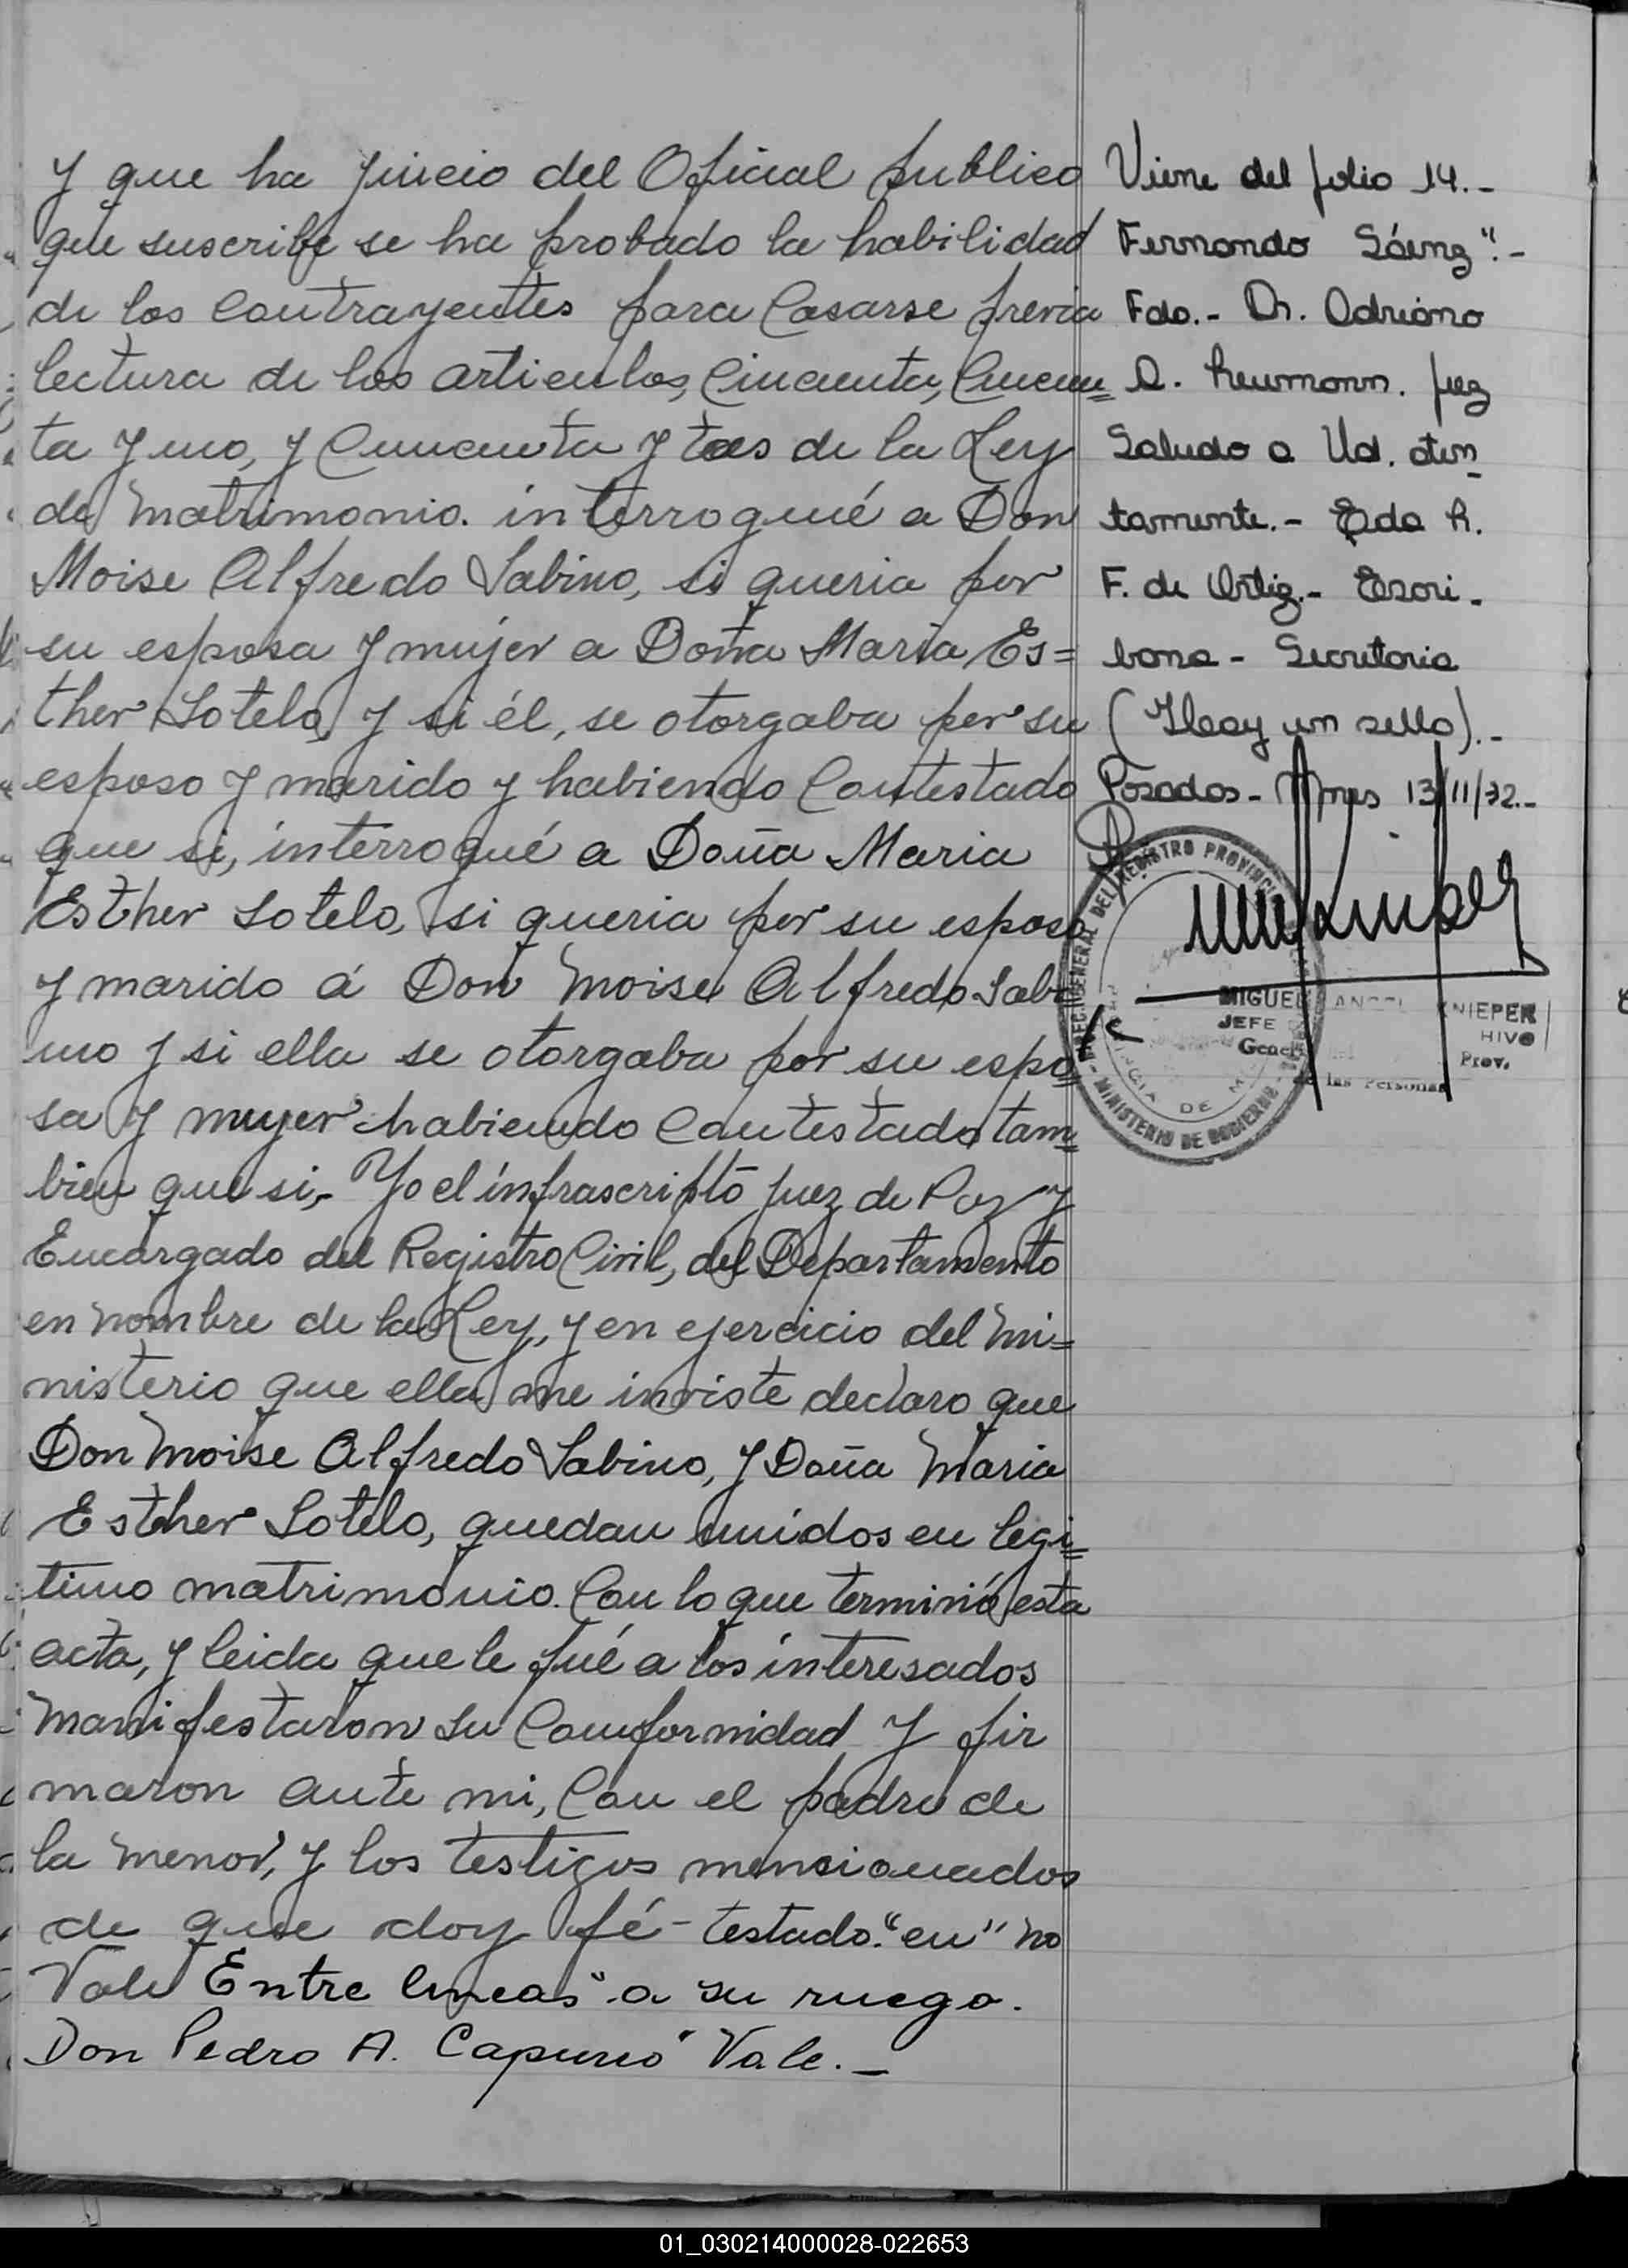 y que ha juicio del Oficial publico
que suscribe se ha probado la habilidad
de los Contrayentes para Casarse previa
lectura de los articulos, Cincuenta, Cincuen=
ta y uno, y Cincuenta y tres de la Ley
de Matrimonio. interrogué a Don
Moise Alfredo Sabino, si queria por
su esposa y mujer a Doña Maria Es=
ther Sotelo, y si él, se otorgaba por su
esposo y marido y habiendo Contestado
que si, interrogué a Doña Maria
Esther Sotelo, si queria por su esposo
y marido á Don Moise Alfredo Sabi
no y si ella se otorgaba por su espo=
sa y mujer habiendo Contestado tam=
bien que si,- Yo el infrascripto Juez de Paz y
Encargado del Registro Civil, del Departamento
en nombre de la Ley, y en ejercicio del Mi=
nisterio que ella me inviste declaro que
Don Moise Alfredo Sabino, y Doña Maria
Esther Sotelo, quedan unidos en legi=
timo matrimonio. Con lo que terminó esta
acta, y leida que le fué a los interesados
Manifestaron su Conformidad y fir
maron ante mi, Con el padre de
la menor, y los testigos mencionados
de que doy fé - testado. "en" no
Vale Entre lineas "a su ruego.
Don Pedro A. " Vale.-
Viene del folio 14.-
Fernando Sáenz".-
Fdo.- Dr. Adriano
Juez
Saludo a Ud. aten
tamente.- Eda R.
F. de Ortiz.- Escri-
bana - Secretaria
(Hay un sello).-
Posadas - Mnes 13/11/72.-
DIRECCION GENERAL DEL REGISTRO PROVINCIAL
MINISTERIO DE GOBIERNO
MIGUEL ANGEL KNIEPER
JEFE HIVO
General Prov.
de las Personas
01_030214000028-022653